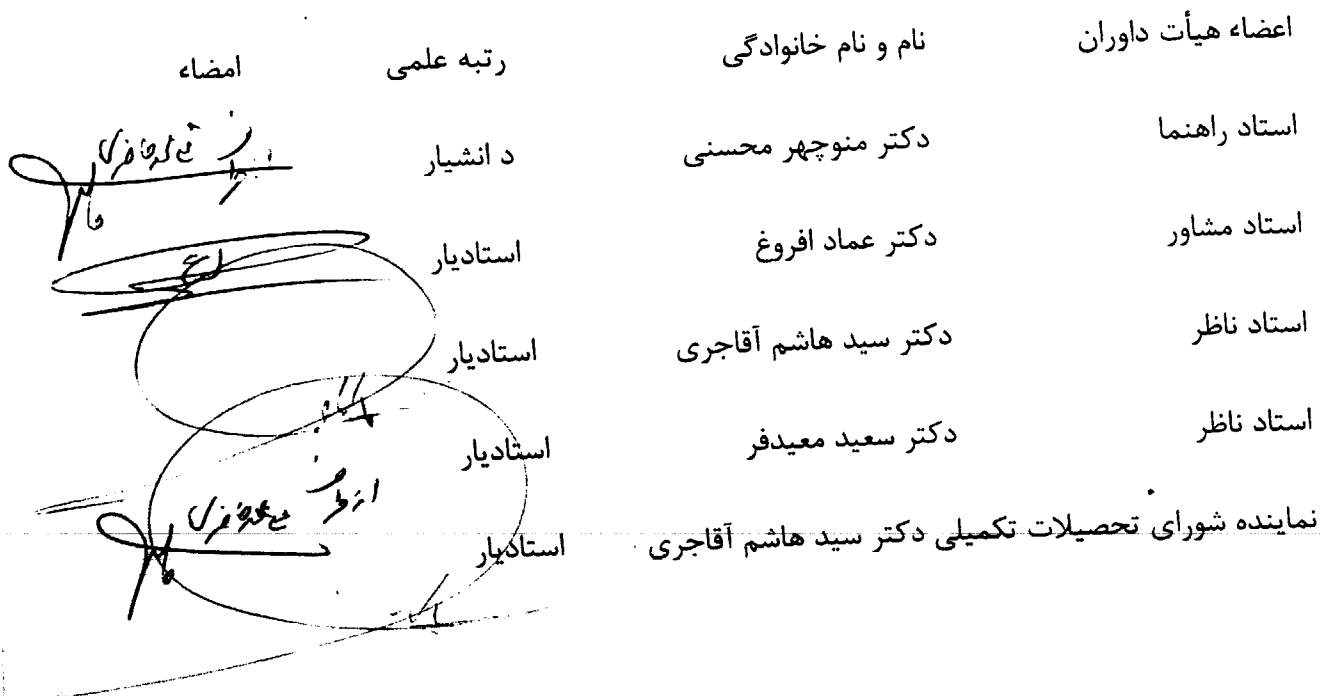 اعضاء هیأت داوران نام و نام خانوادگی رتبه علمی امضاء
استاد راهنما دکتر منوچهر محسنی د انشیار
استاد مشاور دکتر عماد افروغ استادیار
استاد ناظر دکتر سید هاشم آقاجری استادیار
استاد ناظر دکتر سعید معیدفر استادیار
نماینده شورای تحصیلات تکمیلی دکتر سید هاشم آقاجری استادیار